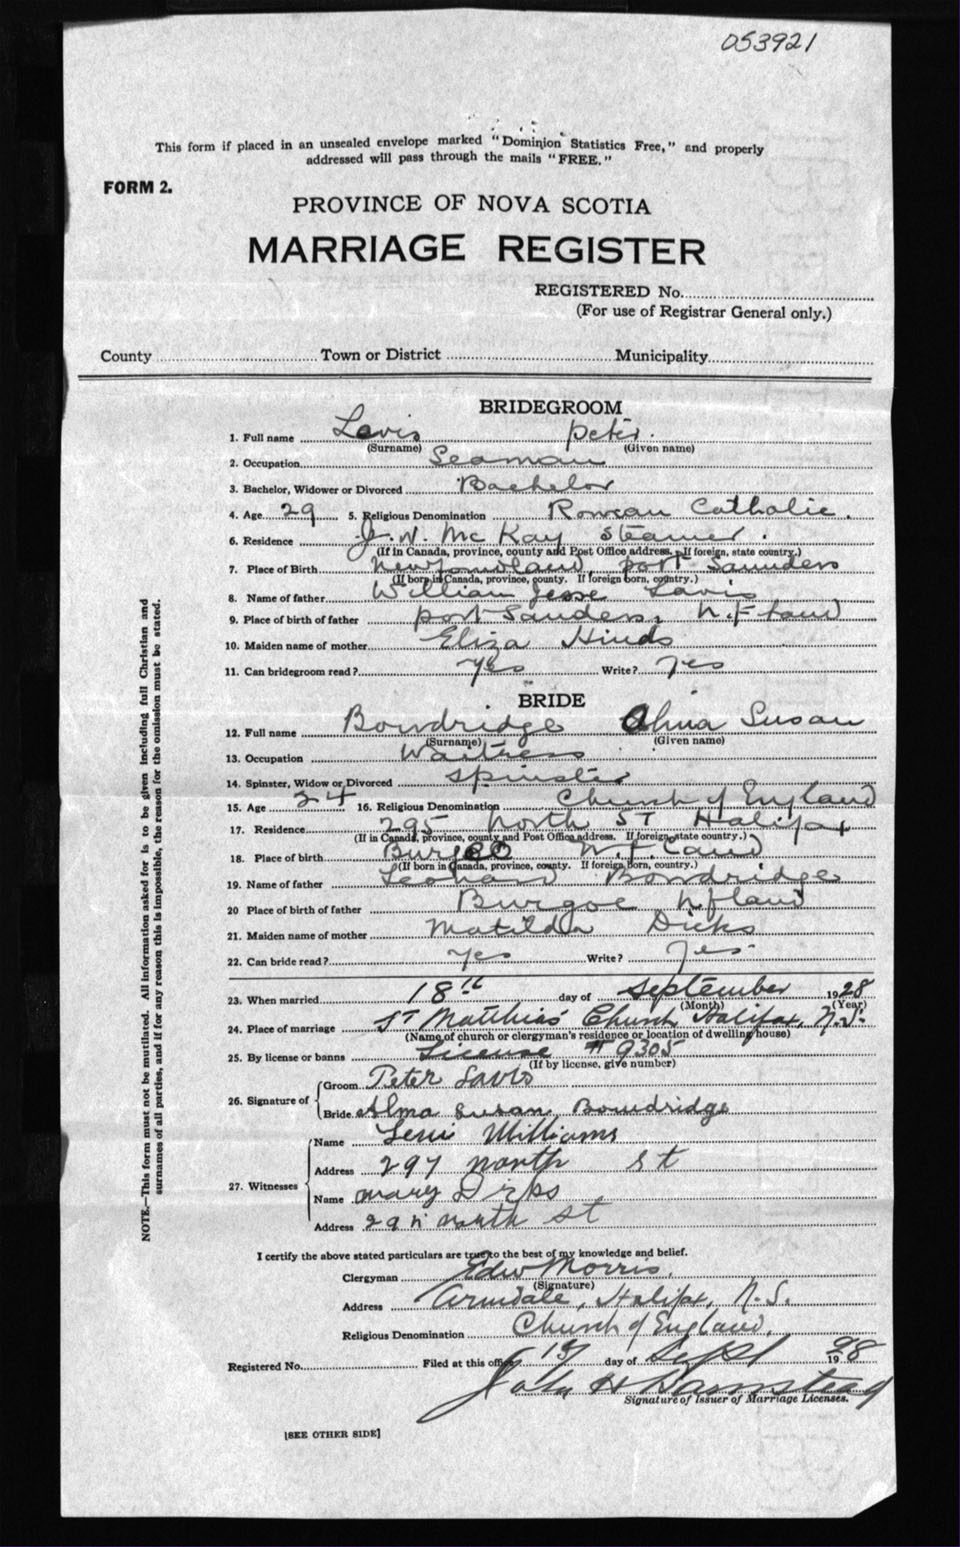 053921
This form if placed in an unsealed envelope marked "Dominion Statistics Free," and properly
addressed will pass through the mails "FREE."
FORM 2.
PROVINCE OF NOVA SCOTIA
MARRIAGE REGISTER
REGISTERED No.
(For use of Registrar General only.)
County Town or District Municipality
BRIDEGROOM
1. Full name Lavis Peter.
(Surname) (Given name)
2. Occupation Seaman
3. Bachelor, Widower or Divorced Bachelor
4. Age 29 5. Religious Denomination Roman Catholic.
6. Residence J. W. McKay Steamer.
(If in Canada, province, county and Post Office address. If foreign, state country.)
7. Place of Birth Newfoundland, port Saunders
(If born in Canada, province, county. If foreign born, country.)
8. Name of father William Jesse Lavis
9. Place of birth of father port Sanders, N.F land
10. Maiden name of mother Eliza Hinds
11. Can bridegroom read? Yes Write? Yes
BRIDE
12. Full name Bowdridge Alma Susan
(Surname) (Given name)
13. Occupation Waitress
14. Spinster, Widow or Divorced Spinster
15. Age 24 16. Religious Denomination Church of England
17. Residence 295 North ST Halifax
(If in Canada, province, county and Post Office address. If foreign, state country.)
18. Place of birth Burgeo N.F. Land
(If born in Canada, province, county. If foreign born, country.)
19. Name of father Bowdridge
20 Place of birth of father Burgoe N.fland
21. Maiden name of mother Matilda Dicks
22. Can bride read? Yes Write? Yes
23. When married 18th day of September 1928
(Month) (Year)
24. Place of marriage St Matthias' Church Halifax, N.S.
(Name of church or clergyman's residence or location of dwelling house)
25. By license or banns License # 9305
(If by license, give number)
26. Signature of
Groom Peter Lavis
Bride Alma Susan Bowdridge
27. Witnesses
Name Williams
Address 297 North St
Name Mary
Address North St
I certify the above stated particulars are true to the best of my knowledge and belief.
Clergyman Edw Morris.
(Signature)
Address Armdale, Halifax, N.S.
Religious Denomination Church of England,
Registered No. Filed at this office day of Sept 1928
John H Barnstead
Signature of Issuer of Marriage Licenses.
[SEE OTHER SIDE]
NOTE.—This form must not be mutilated. All information asked for is to be given including full Christian and
surnames of all parties, and if for any reason this is impossible, the reason for the omission must be stated.